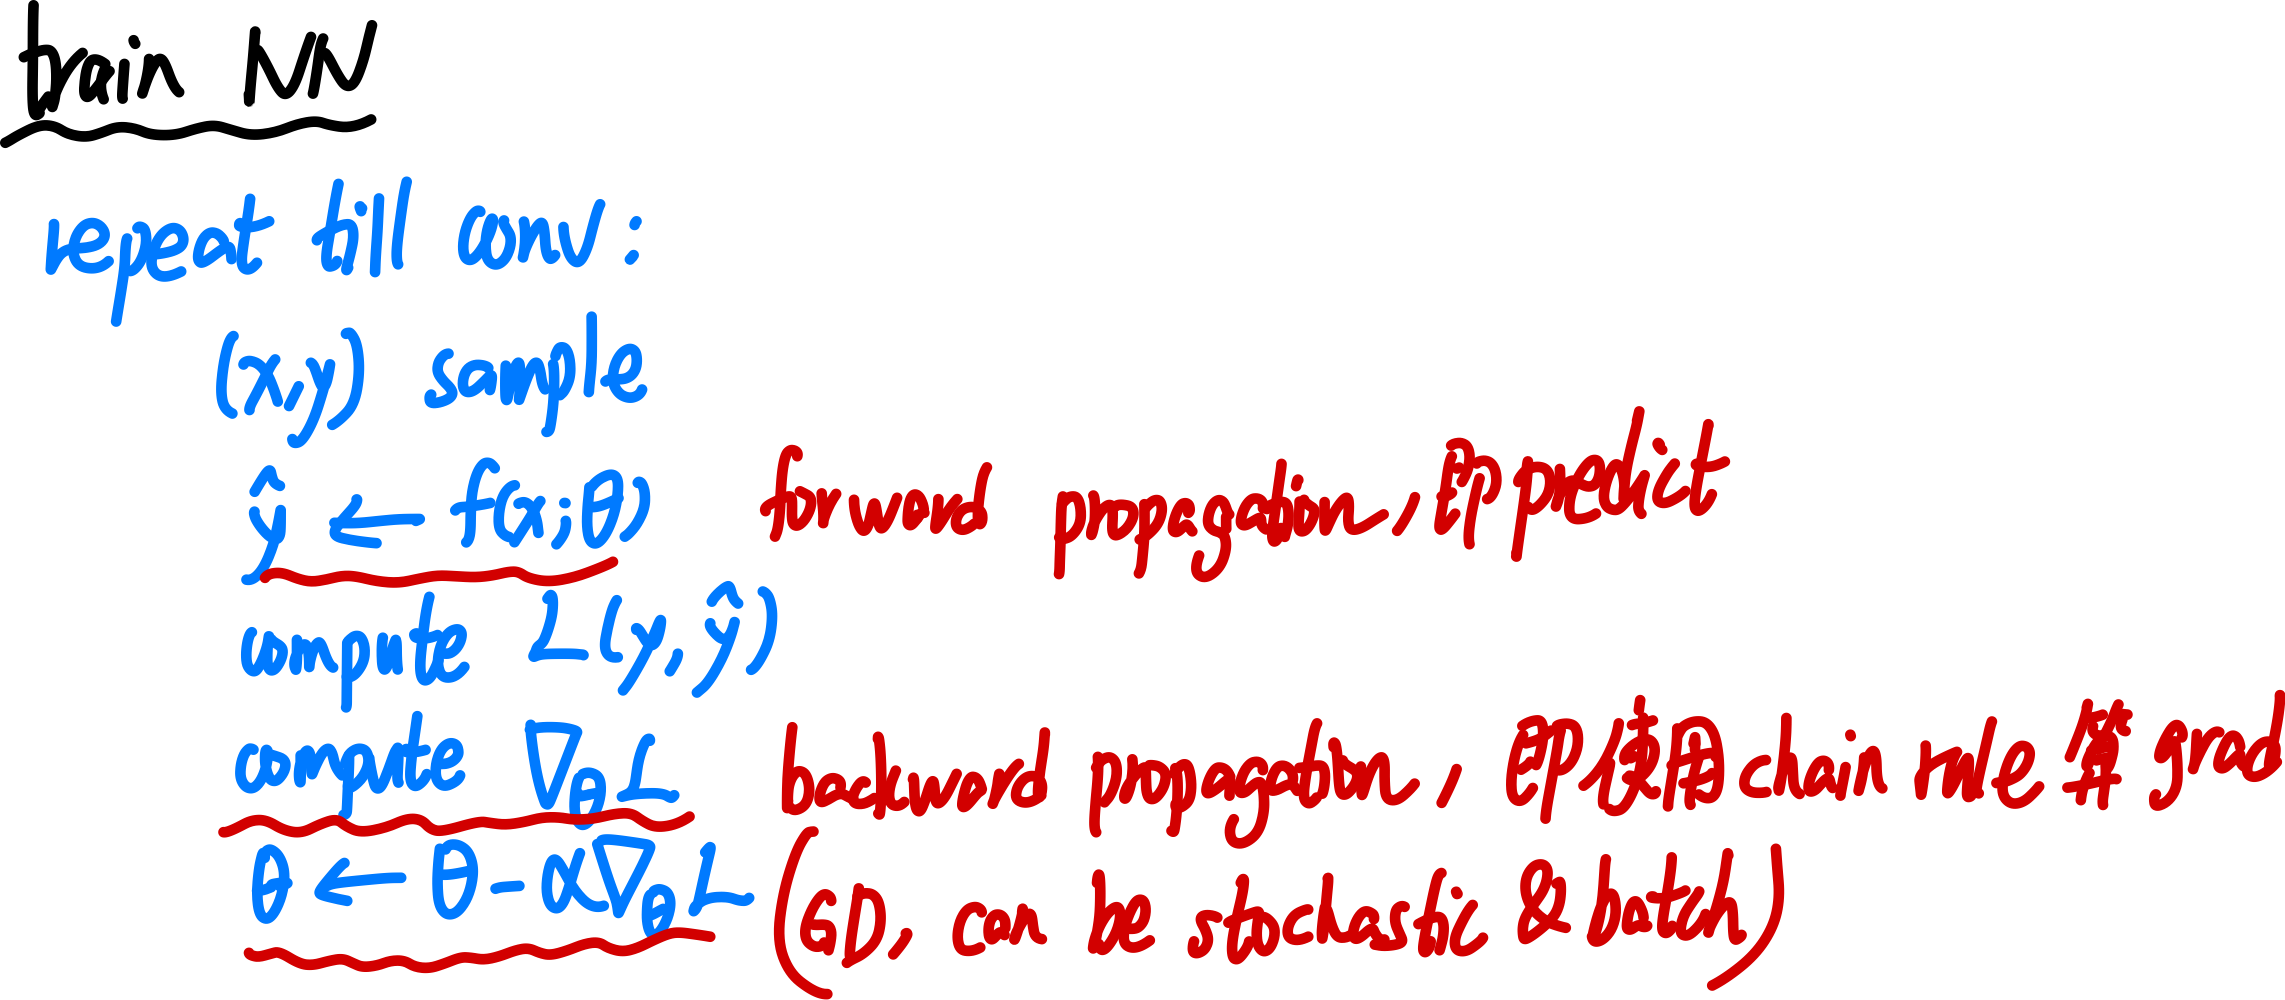 train NN
repeat till conv:
(x,y) sample
ŷ ← f(x;θ) forward propagation, 即 predict
compute L(y,ŷ)
compute ∇θL backward propagation, 即使用 chain rule 算 grad
θ ← θ - α∇θL (GD, can be stochastic & batch)